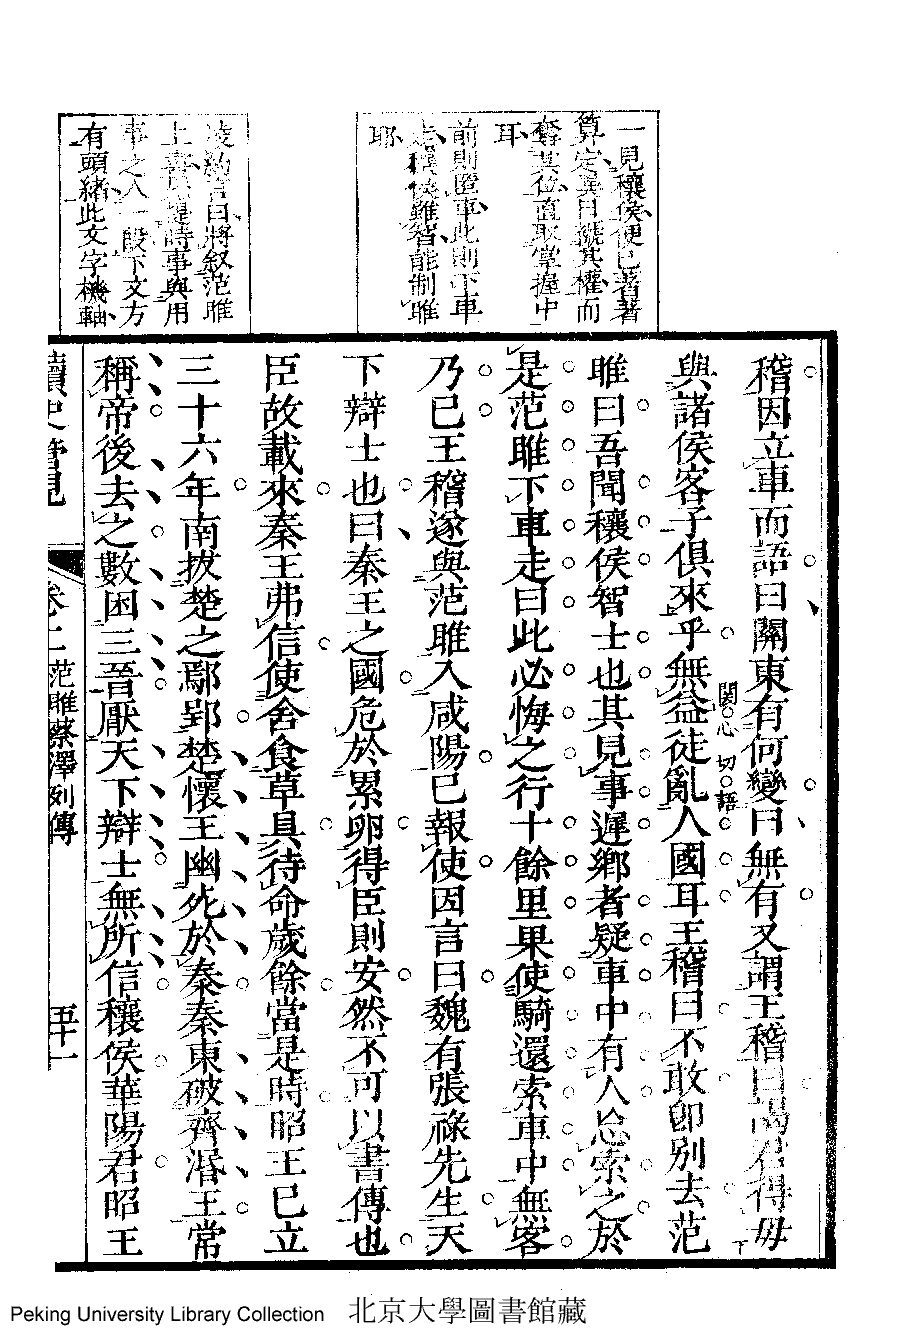 一見穰侯便已著著
算定異日攏其權而
奪其位直取掌握中
耳
前則匿車此則下車
走穰侯雖智能制雎
耶
凌約言曰將叙范雎
上書先提時事與用
事之人一段下文方
有頭緒此文字機軸
稽因立車而語曰關東有何變曰無有又謂王稽曰謁君得毋
與諸侯客子俱來乎無益徒亂人國耳王稽曰不敢卽別去范
關心切語
雎曰吾聞穰侯智士也其見事遲鄉者疑車中有人忘索之於
是范雎下車走曰此必悔之行十餘里果使騎還索車中無客
乃已王稽遂與范雎入咸陽已報使因言曰魏有張祿先生天
下辯士也曰秦王之國危於累卵得臣則安然不可以書傳也
臣故載來秦王弗信使舍食草具待命歲餘當是時昭王已立
三十六年南拔楚之鄢郢楚懷王幽死於秦秦東破齊湣王常
稱帝後去之數困三晉厭天下辯士無所信穰侯華陽君昭王
讀史管見
卷二 范雎蔡澤列傳
五十一
Peking University Library Collection 北京大學圖書館藏